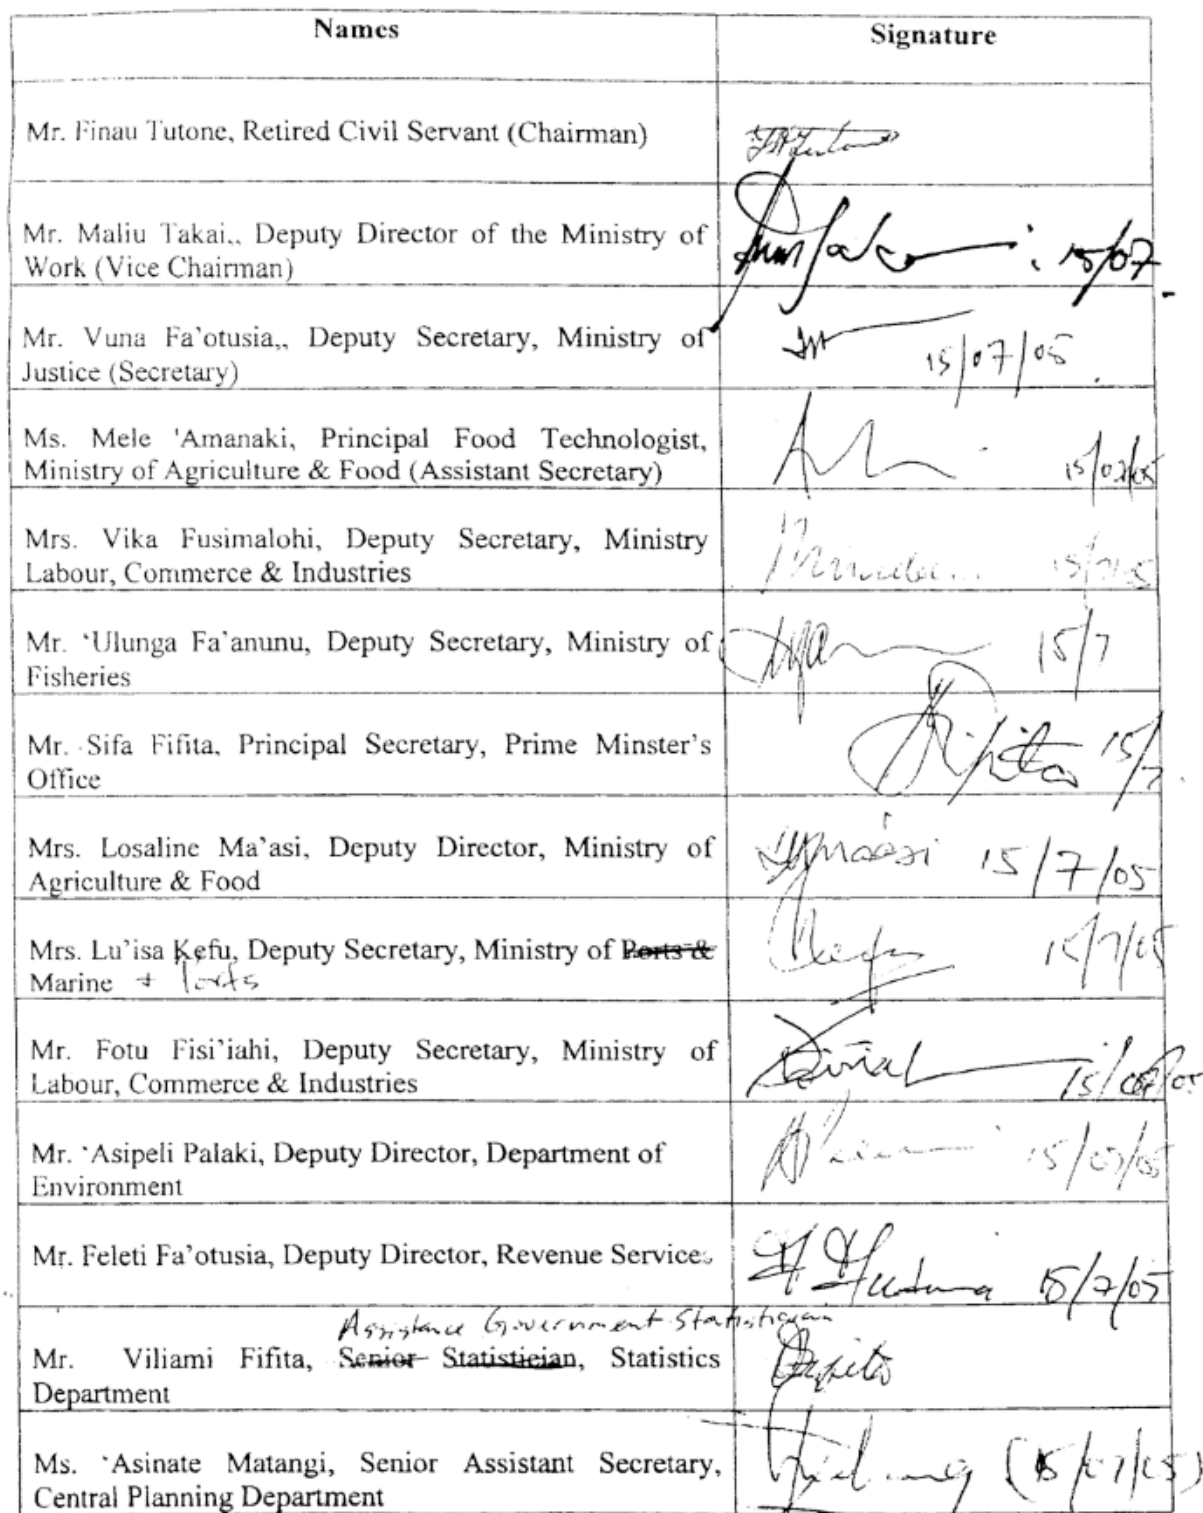 Names
Signature
Mr. Finau Tutone, Retired Civil Servant (Chairman)
Mr. Maliu Takai,, Deputy Director of the Ministry of
Work (Vice Chairman)
: 15/07
Mr. Vuna Fa'otusia,, Deputy Secretary, Ministry of
Justice (Secretary)
15/07/05
Ms. Mele 'Amanaki, Principal Food Technologist,
Ministry of Agriculture & Food (Assistant Secretary)
15/07/05
Mrs. Vika Fusimalohi, Deputy Secretary, Ministry
Labour, Commerce & Industries
Mr. ‘Ulunga Fa'anunu, Deputy Secretary, Ministry of
Fisheries
15/7
Mr. Sifa Fifita, Principal Secretary, Prime Minster's
Office
Fifita 15/7
Mrs. Losaline Ma'asi, Deputy Director, Ministry of
Agriculture & Food
Ma'asi 15/7/05
Mrs. Lu'isa Kefu, Deputy Secretary, Ministry of Ports &
Marine + Ports
15/7/05
Mr. Fotu Fisi'iahi, Deputy Secretary, Ministry of
Labour, Commerce & Industries
15/07/05
Mr. ‘Asipeli Palaki, Deputy Director, Department of
Environment
15/07/05
Mr. Feleti Fa'otusia, Deputy Director, Revenue Services
15/7/05
Assistance Government Statistician
Mr. Viliami Fifita, Senior Statistician, Statistics
Department
Ms. ‘Asinate Matangi, Senior Assistant Secretary,
Central Planning Department
(15/07/05)